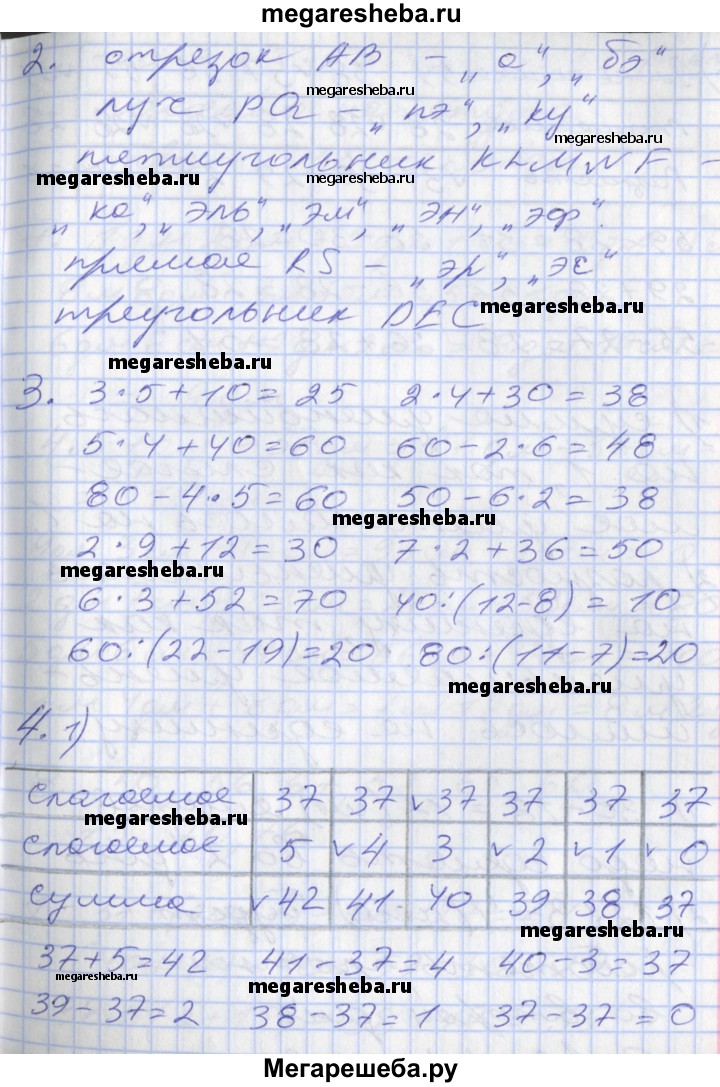 megaresheba.ru
2. отрезок AB – „а“, „бэ“
megaresheba.ru
луч PQ – „пэ“, „ку“
megaresheba.ru
пятиугольник KLMNF –
megaresheba.ru
megaresheba.ru
„ка“, „эль“, „эм“, „эн“, „эф“.
прямая RS – „эр“, „эс“
megaresheba.ru
треугольник DEC
megaresheba.ru
3. 3·5+10=25 2·4+30=38
5·4+40=60 60-2·6=48
80-4·5=60 50-6·2=38
megaresheba.ru
2·9+12=30 7·2+36=50
megaresheba.ru
6·3+52=70 40:(12-8)=10
60:(22-19)=20 80:(11-7)=20
megaresheba.ru
4. 1)
Слагаемое 37 37 ✓37 37 37 37
megaresheba.ru
Слагаемое 5 ✓4 3 ✓2 ✓1 ✓0
Сумма ✓42 41 40 39 38 37
megaresheba.ru
37+5=42 41-37=4 40-3=37
megaresheba.ru
megaresheba.ru
39-37=2 38-37=1 37-37=0
Мегарешеба.ру